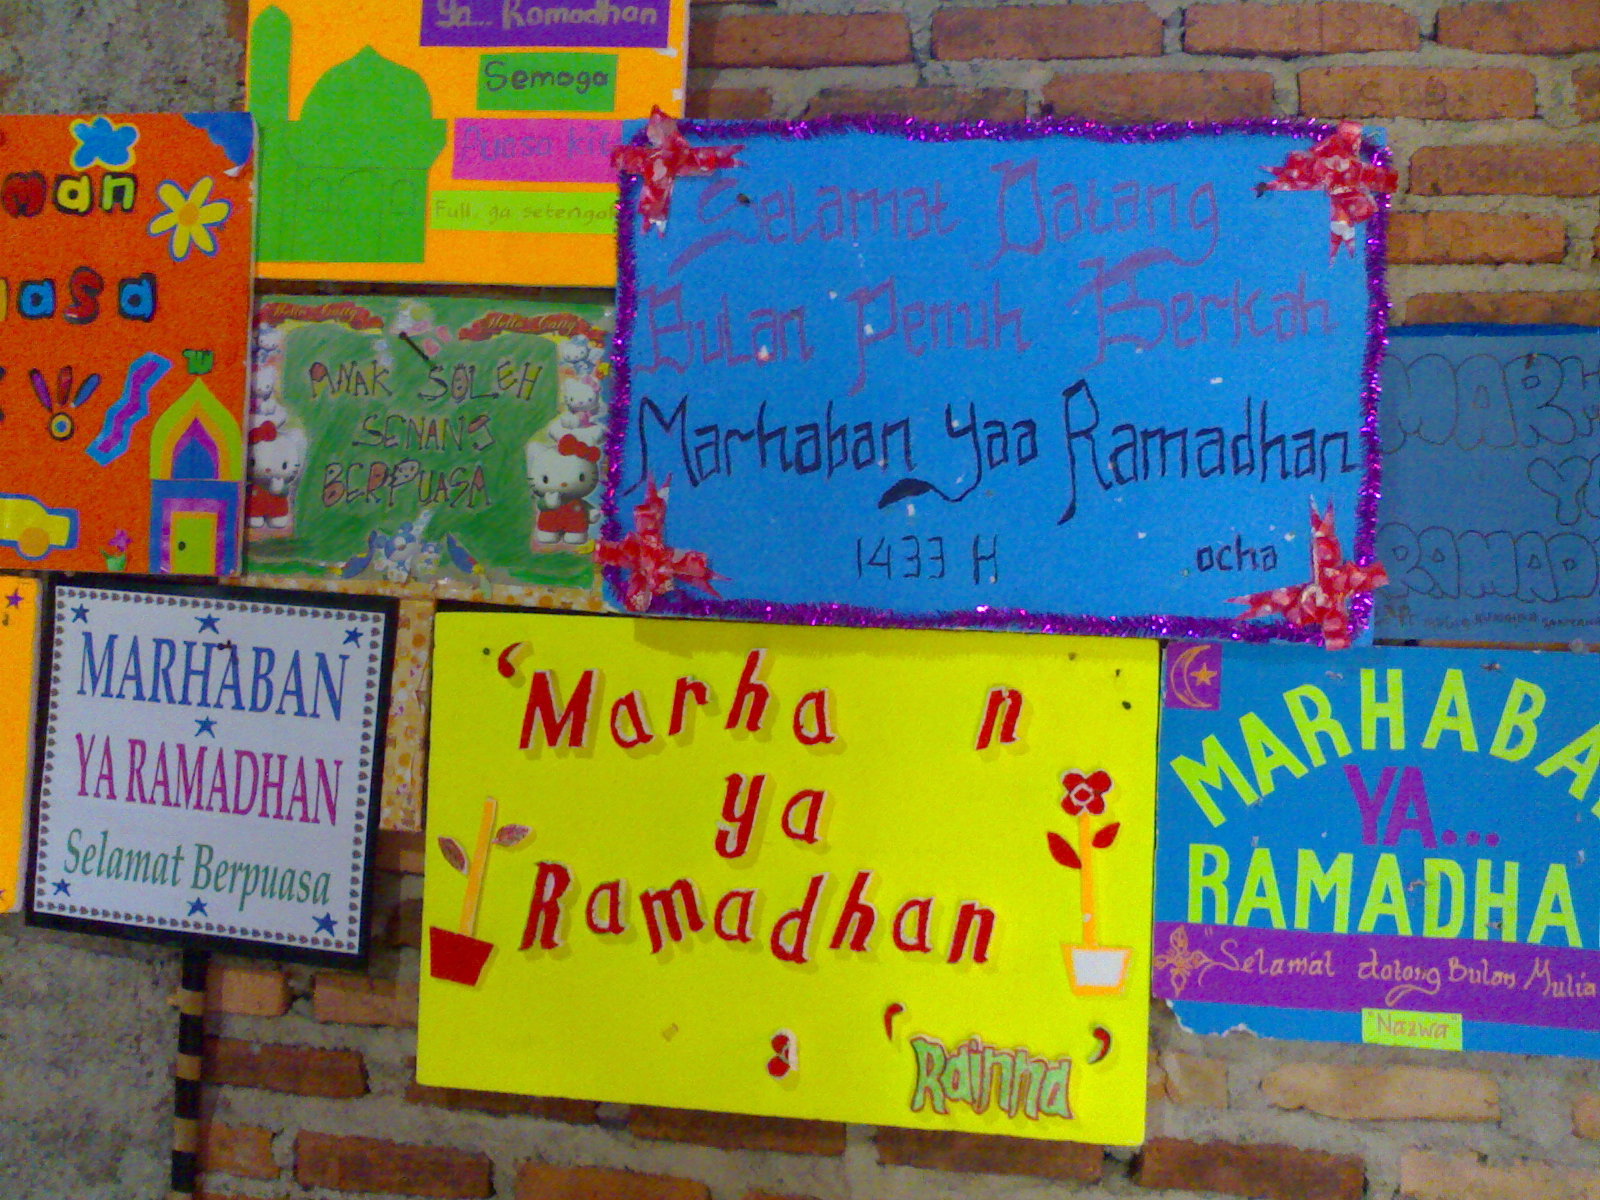 Ya... Ramadhan
Semoga
Puasa kit
Full, ga setengah
man
asa
Hello Kitty
Hello Kitty
ANAK SOLEH
SENANG
BERPUASA
Selamat Datang
Bulan Penuh Berkah
Marhaban Yaa Ramadhan
1433 H
ocha
MARH
YA
RAMAD
MARHABAN
YA RAMADHAN
Selamat Berpuasa
'Marha n
ya
Ramadhan
a
'Rainna'
MARHABA
YA...
RAMADHA
"Selamat datang Bulan Mulia
"Nazwa"